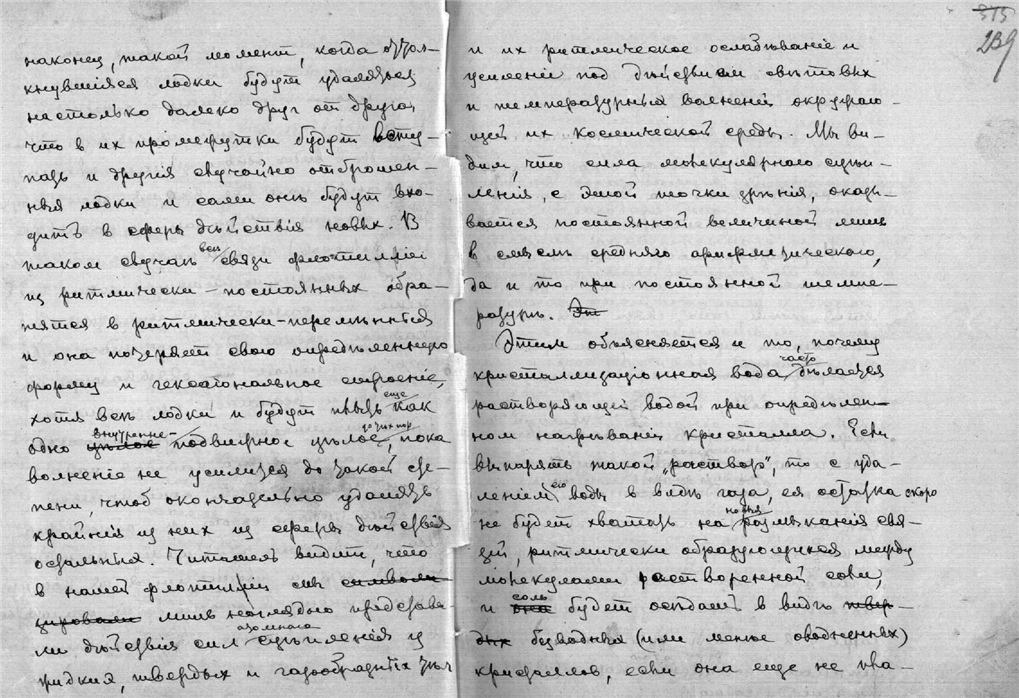 наконец, такой момент, когда оттол-
кнувшияся лодки будут удаляться
настолько далеко друг от друга,
что в их промежутки будут всту-
пать и другия случайно отброшен-
ныя лодки и сами онѣ будут вхо-
дить в сферы дѣйствія новых. В
таком случаѣ всѣ связи флотиліи
из ритмически-постоянных обра-
тятся в ритмически-перемѣнныя
и она потеряет свою опредѣленную
форму и гексагональное строеніе,
хотя всѣ лодки и будут плыть еще как
одно внутренне-подвижное цѣлое до тѣх пор, пока
волненіе не усилится до такой сте-
пени, чтоб окончательно удалять
крайнія из них из сферы дѣйствія
остальных. Читатель видит, что
в нашей флотиліи мы символи
зировали лишь наглядно представи-
ли дѣйствія сил атомнаго сцѣпленія у
жидких, твердых и газообразных тѣл
315
239
и их ритмическое ослабѣваніе и
усиленіе под дѣйствием свѣтовых
и температурных волненій окружаю-
щей их космической среды. Мы ви-
дим, что сила молекулярного сцѣп-
ленія, с этой точки зрѣнія, оказы-
вается постоянной величиной лишь
в смыслѣ средняго арифметического,
да и то при постоянной темпе-
ратурѣ. Эт
Этим объясняется и то, почему
кристаллизаціонная вода часто дѣлается
растворяющей водой при опредѣлен-
ном нагрѣваніи кристалла. Если
выпарять такой „раствор", то с уда-
леніем его воды в видѣ газа, ея остатка скоро
не будет хватать на размыканія свя-
зей, ритмически образующихся между
молекулами растворенной соли,
и она соль будет осѣдать в видѣ твер-
дых безводных (или менѣе оводненных)
кристаллов, если она еще не пла-